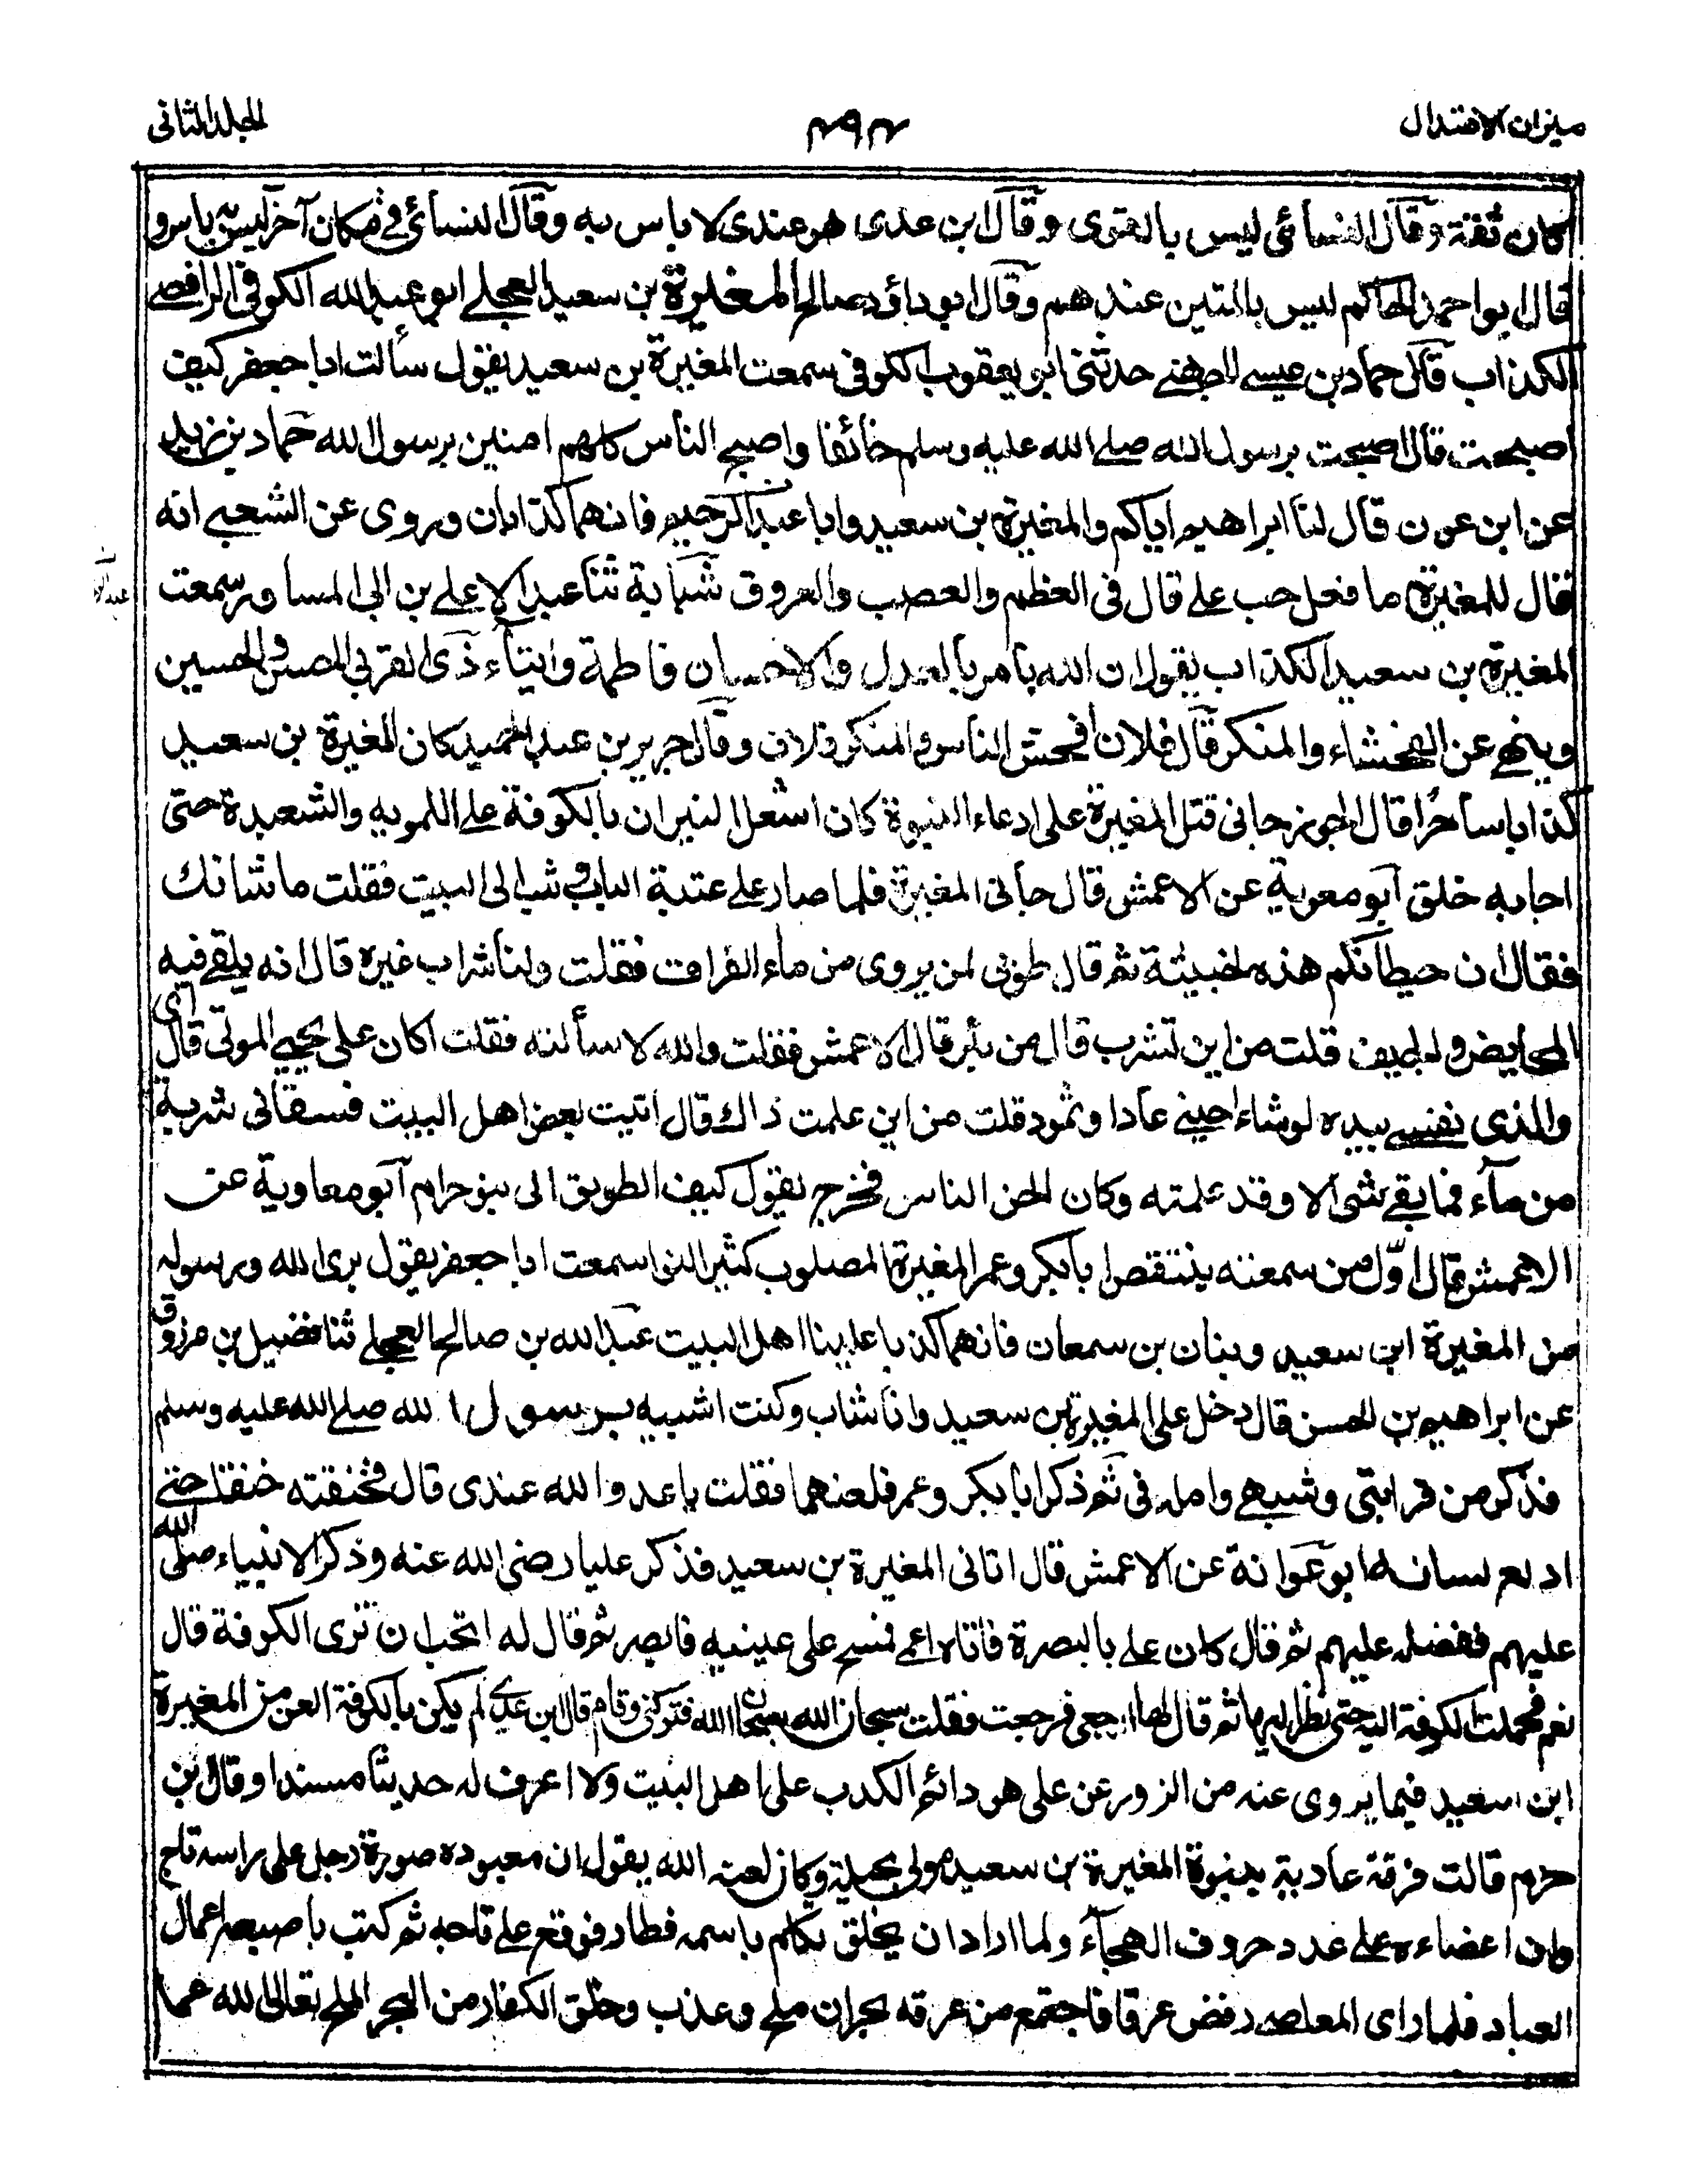 ميزان الاعتدال
٤٩٤
المجلد الثانى
كان ثقة وقال النسائى ليس بالقوى وقال ابن عدى هو عندى لا باس به وقال النسائى فى مكان آخر ليس به باس و
قال ابو احمد الحاكم ليس بالمتين عندهم وقال ابو داؤد صالح المغيرة بن سعيد العجلے ابو عبد الله الكوفى الرافضے
الكذاب قال حماد بن عيسے الجهنے حدثنى ابو يعقوب الكوفى سمعت المغيرة بن سعيد يقول سألت ابا جعفر كيف
اصبحت قال اصبحت برسول الله صلے الله عليه وسلم خائفا واصبح الناس كلهم امنين برسول الله حماد بن زيد
عن ابن عون قال لنا ابراهيم اياكم والمغيرة بن سعيد وابا عبد الرحيم فانهما كذابان وروى عن الشعبے انه
قال للمغيرة ما فعل حب علے قال فى العظم والعصب والعروق شبابة ثنا عبد الاعلے بن ابى المساور سمعت
المغيرة بن سعيد الكذاب يقول ان الله يامر بالعدل والاحسان فاطمة وايتاء ذى القربى الحسن والحسين
وينهے عن الفحشاء والمنكر قال فلان افحش الناس والمنكر فلان وقال جرير بن عبد الحميد كان المغيرة بن سعيد
كذابا ساحرا قال الجوزجانى قتل المغيرة على ادعاء النبوة كان اشعل النيران بالكوفة علے التمويه والشعبدة حتى
اجابه خلق ابو معوية عن الاعمش قال جانى المغيرة فلما صار علے عتبة الباب وثب الى البيت فقلت ما شانك
فقال ان حيطانكم هذه لخبيثة ثم قال طوبى لمن يروى من ماء الفرات فقلت ولنا شراب غيره قال انه يلقے فيه
المحايض والجيف قلت من اين تشرب قال من بئر قال الاعمش فقلت والله لاسألنه فقلت اكان على يحيے الموتى قال اى
والذى نفسے بيده لو شاء احيے عادا وثمود قلت من اين علمت ذاك قال اتيت بعض اهل البيت فسقانى شربة
من ماء فما بقے شئ الا وقد علمته وكان الحن الناس فخرج يقول كيف الطريق الى بنو حرام ابو معاوية عن
الاعمش قال اوّل من سمعته ينتقص ابا بكر وعمر المغيرة المصلوب كثير النوا سمعت ابا جعفر يقول برى الله ورسوله
من المغيرة ابن سعيد وبنان بن سمعان فانهما كذبا علينا اهل البيت عبد الله بن صالح العجلے ثنا فضيل بن مرزوق
عن ابراهيم بن الحسن قال دخل على المغيرة بن سعيد وانا شاب وكنت اشبه برسول الله صلے الله عليه وسلم
فذكر من قرابتى وشبهے وامله فى ثم ذكر ابا بكر وعمر فلعنهما فقلت يا عدو الله عندى قال فخنقته خنقا حتے
ادلع لسانه ابو عوانة عن الاعمش قال اتانى المغيرة بن سعيد فذكر عليا رضى الله عنه وذكر الانبياء صلى الله
عليهم ففضله عليهم ثم قال كان علے بالبصرة فاتاه اعمے فمسح على عينيه فابصر ثم قال له اتحب ان ترى الكوفة قال
نعم فحملت الكوفة اليه حتى نظر اليها ثم قال لها ارجعى فرجعت فقلت سبحان الله سبحان الله فتركنى وقام قال ابن عدے لم يكن بالكوفة العن من المغيرة
ابن سعيد فيما يروى عنه من الزور عن على هو دائم الكذب على اهل البيت ولا اعرف له حديثا مسندا وقال بن
حزم قالت فرقة عادية بنبوة المغيرة بن سعيد مولى بجيلة وكان لعنه الله يقول ان معبوده صورة رجل على راسه تاج
وان اعضاءه علے عدد حروف الهجاء ولما اراد ان يخلق تكلم باسمه فطار فوقع علے تاجه ثم كتب باصبعه اعمال
العباد فلما راى المعاصے رفض عرقا فاجتمع من عرقه بحران ملح وعذب وخلق الكفار من البحر الملح تعالى الله عما